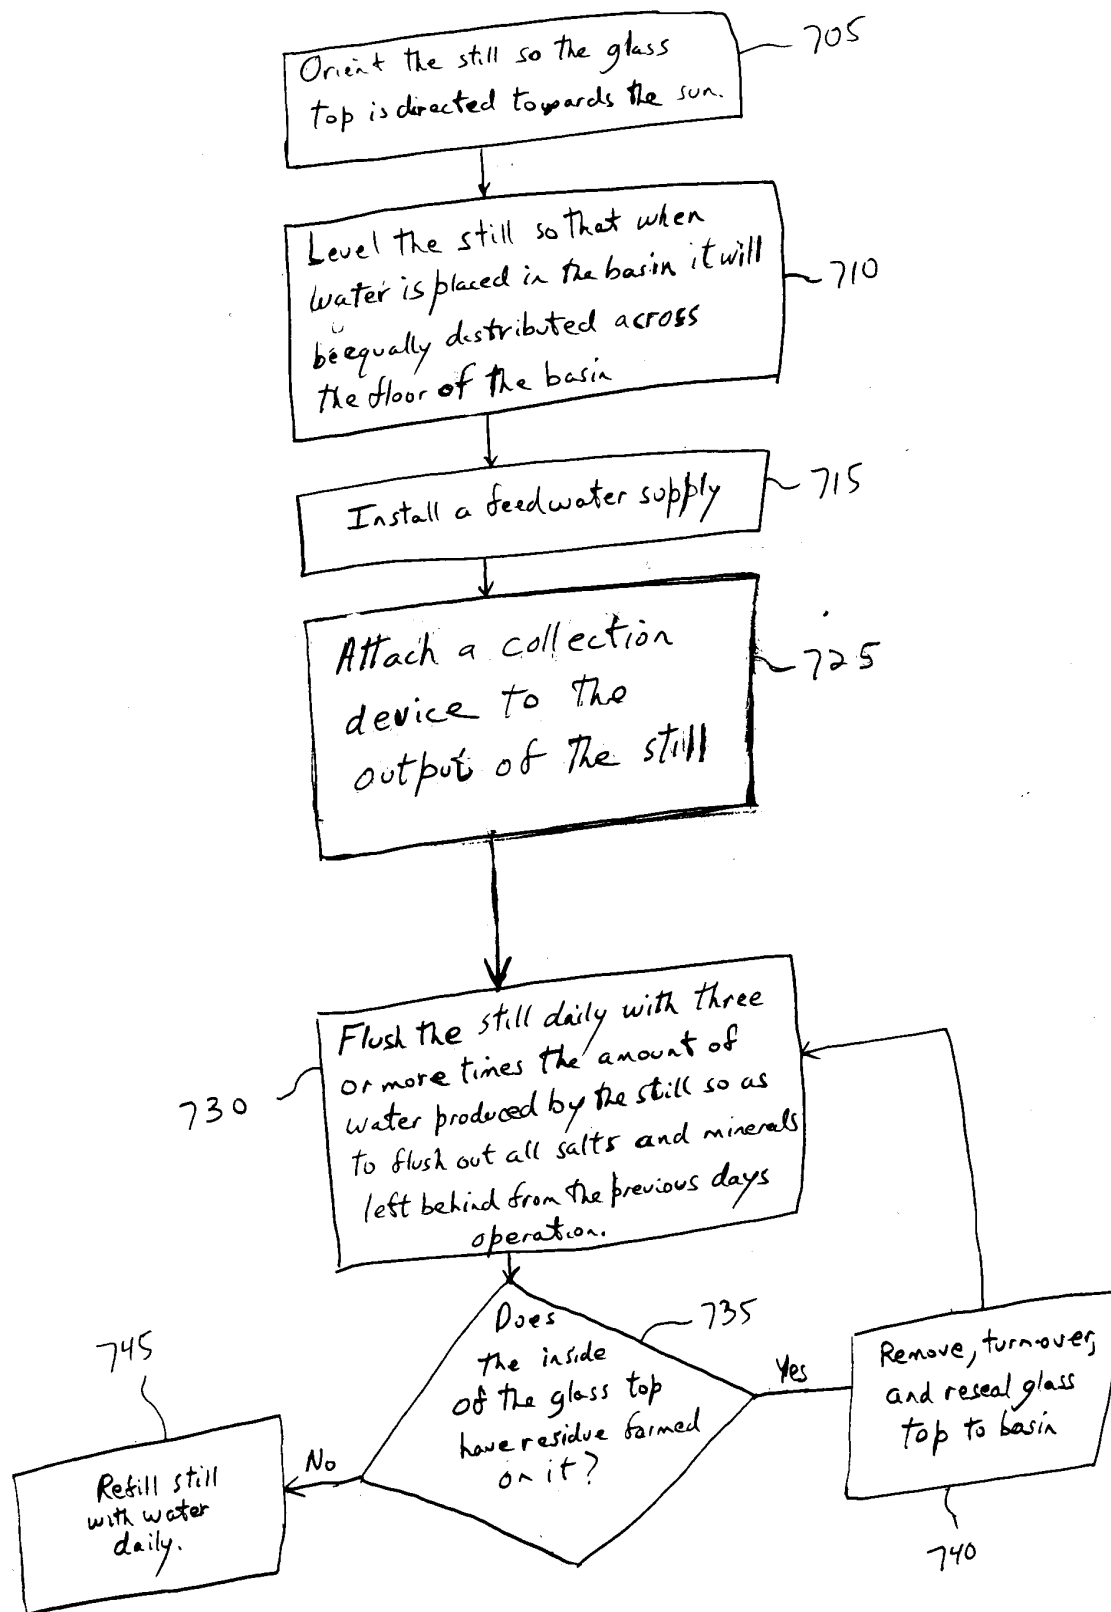 Orient the still so the glass
top is directed towards the sun.
705
Level the still so that when
water is placed in the basin it will
be equally distributed across
the floor of the basin
710
Install a feedwater supply
715
Attach a collection
device to the
output of the still
725
Flush the still daily with three
or more times the amount of
water produced by the still so as
to flush out all salts and minerals
left behind from the previous days
operation.
730
Does
the inside
of the glass top
have residue formed
on it?
735
Yes
Remove, turnover,
and reseal glass
top to basin
740
No
745
Refill still
with water
daily.